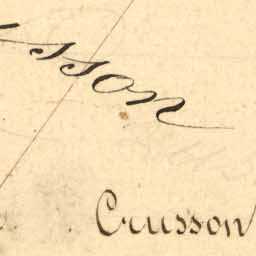 sson
Cusson